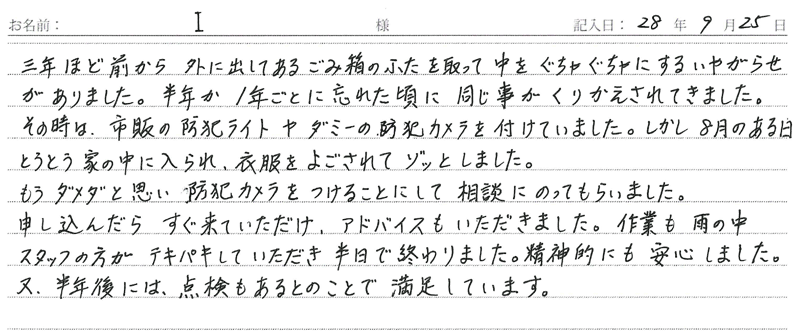 お名前： I 様 記入日： 28 年 9 月 25 日
三年ほど前から 外に出してあるごみ箱のふたを取って中をぐちゃぐちゃにするいやがらせ
がありました。半年か1年ごとに忘れた頃に 同じ事がくりかえされてきました。
その時は、市販の防犯ライトヤダミーの防犯カメラを付けていました。しかし8月のある日
とうとう家の中に入られ、衣服をよごされてゾッとしました。
もうダメダと思い 防犯カメラをつけることにして相談にのってもらいました。
申し込んだら すぐ来ていただけ、アドバイスもいただきました。作業も雨の中
スタッフの方が テキパキしていただき 半日で終わりました。精神的にも安心しました。
又、半年後には、点検もあるとのことで満足しています。